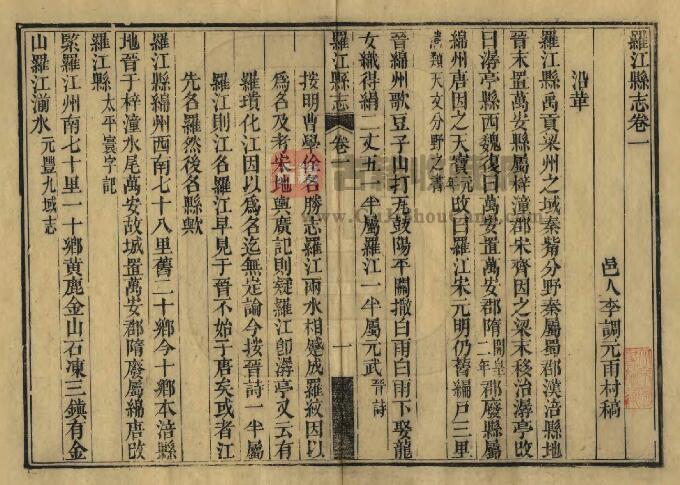 羅江縣志卷一
邑人李調元雨村稿
沿革
羅江縣禹貢梁州之域秦觜分野秦屬蜀郡漢涪縣地
晉末置萬安縣屬梓潼郡宋齊因之梁末移治潺亭改
曰潺亭縣西魏復曰萬安置萬安郡隋開皇二年郡廢縣屬
綿州唐因之天寶元年改曰羅江宋元明仍舊編戸三里
嵩類天文分野之書
晉綿州歌豆子山打瓦鼓陽平關撒白雨白雨下娶龍
女織得絹二丈五一半屬羅江一半屬元武晉詩
按明曹學佺名勝志羅江兩水相蹙成羅紋因以
爲名及考宋地輿廣記則疑羅江卽潺亭又云有
羅璝化江因以爲名迄無定論今按晉詩一半屬
羅江則江名羅江早見于晉不始于唐矣或者江
先名羅然後名縣歟
羅江縣綿州西南七十八里舊二十鄉今十鄉本涪縣
地晉于梓潼水尾萬安故城置萬安郡隋廢屬綿唐改
羅江縣太平寰宇記
緊羅江州南七十里一十鄉黃鹿金山石凍三鎭有金
山羅江湔水元豐九域志
羅江縣志
卷一
一